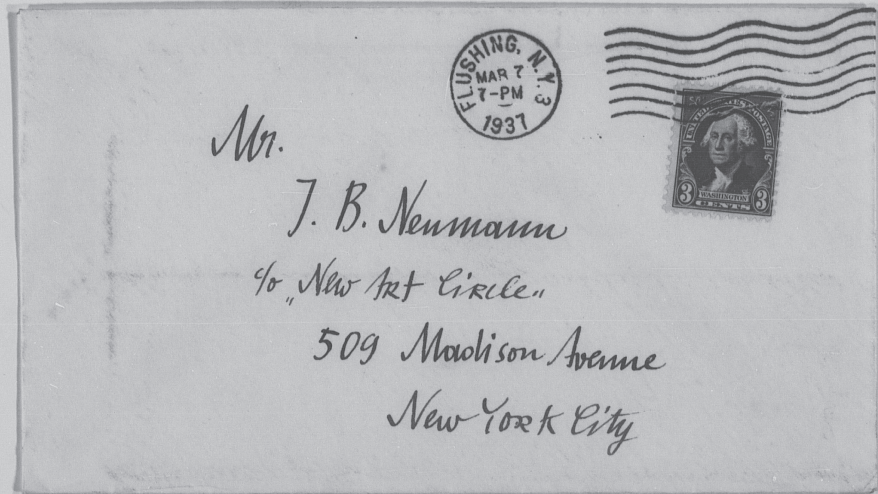 FLUSHING, N.Y. 3
MAR 7
7-PM
1937
UNITED STATES POSTAGE
WASHINGTON
3 CENTS 3
Mr.
J. B. Neumann
c/o „New Art Circle„
509 Madison Avenue
New York City